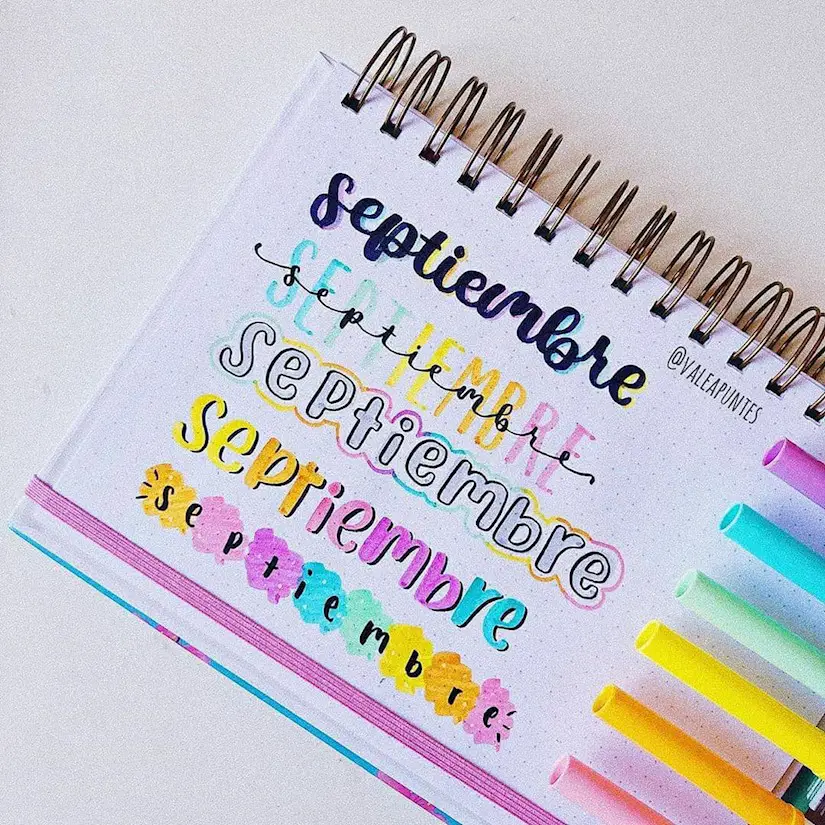 septiembre
SEPTIEMBRE
septiembre
septiembre
septiembre
septiembre
@VALEAPUNTES